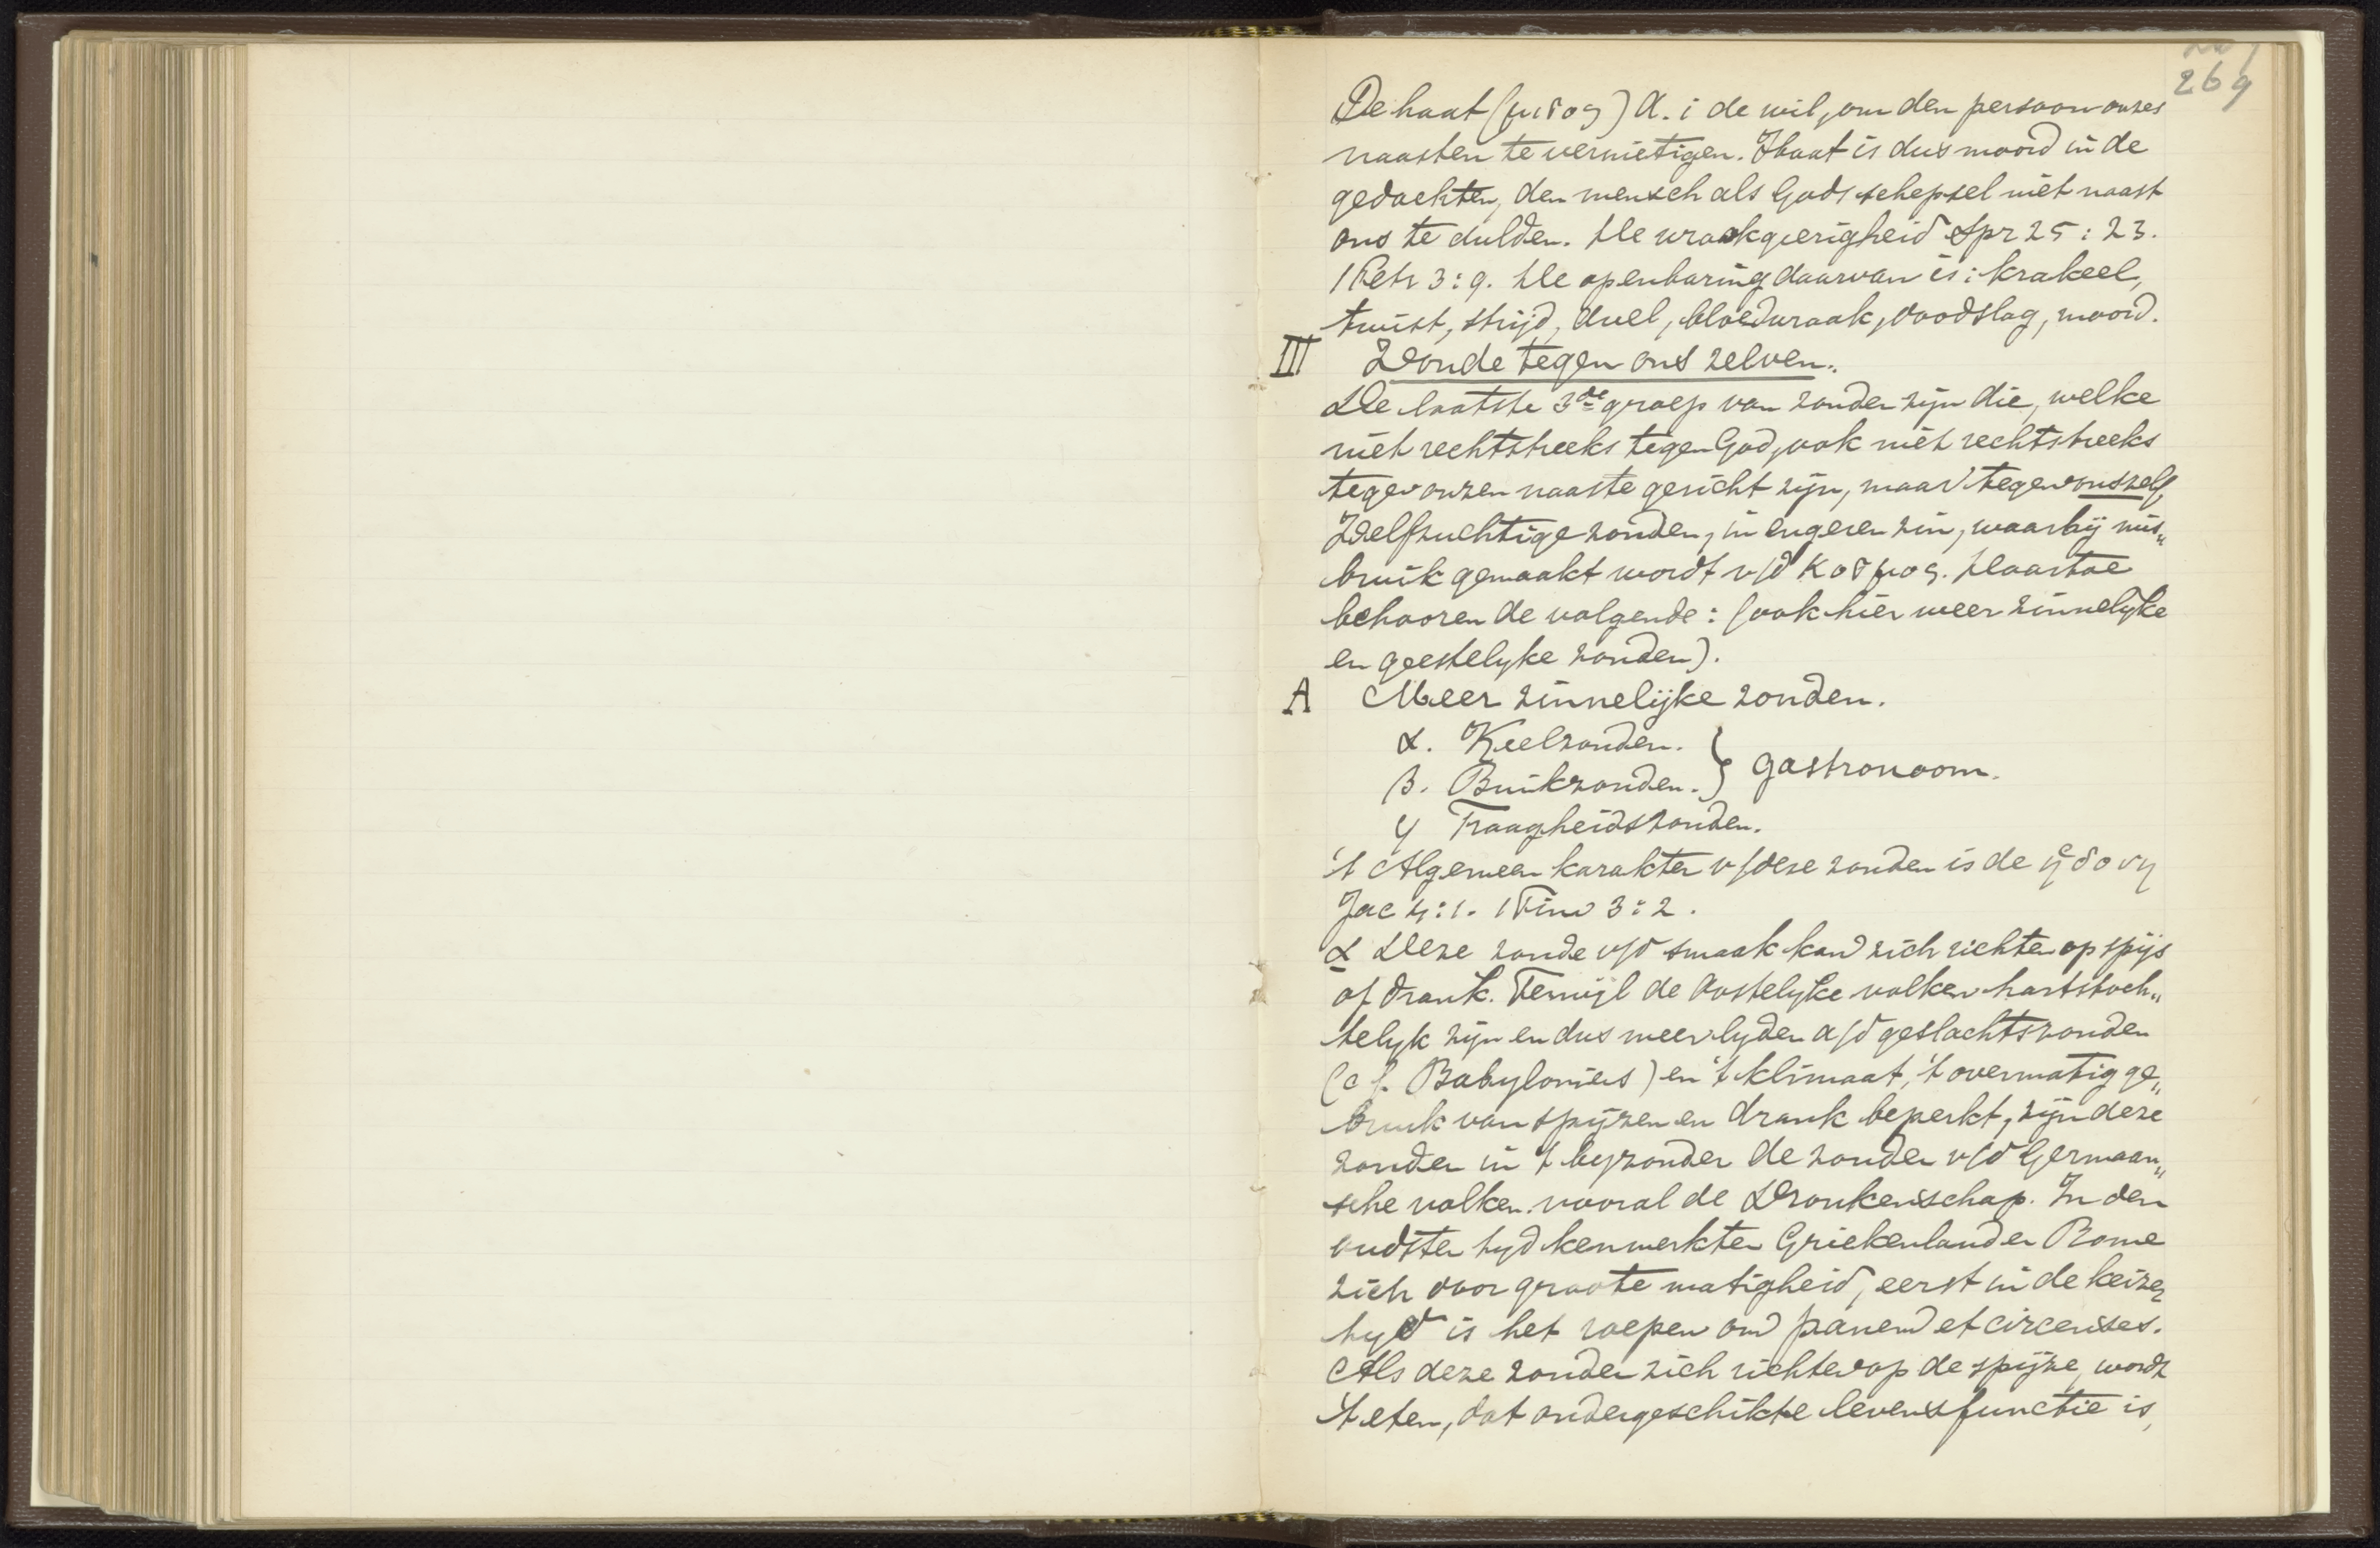 269
De haat (μισος) d.i de wil, om den persoon onzes
naasten te vernietigen. Haat is dus moord in de
gedachten, den mensch als Gods schepsel niet naast
ons te dulden. De wraakgierigheid Spr 25:23.
1 Petr 3:9. De openbaring daarvan is: krakeel,
twist, strijd, duel, bloedwraak, doodslag, moord.
III Zonde tegen ons zelven.
De laatste 3de groep van zonden zijn die, welke
niet rechtstreeks tegen God, ook niet rechtstreeks
tegen onzen naaste gericht zijn, maar tegen onszelf,
Zelfzuchtige zonden, in engeren zin, waarbij mis„
bruik gemaakt wordt v/d κοσμος. Daartoe
behooren de volgende: (ook hier weer zinnelyke
en geestelyke zonden).
A Meer zinnelijke zonden.
α. Keelzonden. } gastronoom.
β. Buikzonden.
γ Traagheidszonden.
't Algemeen karakter v/deze zonden is de ἡδονη
Jac 4:1. 1 Tim 3:2.
α Deze zonde v/d smaak kan zich richten op spijs
of drank. Terwijl de Oostelyke volken hartstoch„
telyk zijn en dus meer lyden a/d geslachtszonden
(cf. Babyloniers) en 't klimaat, 't overmatig ge„
bruik van spijzen en drank beperkt, zijn deze
zonden in 't byzonder de zonden v/d Germaan„
sche volken. vooral de Dronkenschap. In den
oudsten tyd kenmerkten Griekenland en Rome
zich door groote matigheid, eerst in de keizer
tyd is het roepen om panem et circenses.
Als deze zonden zich richten op de spijze, wordt
't eten, dat ondergeschikte levensfunctie is,